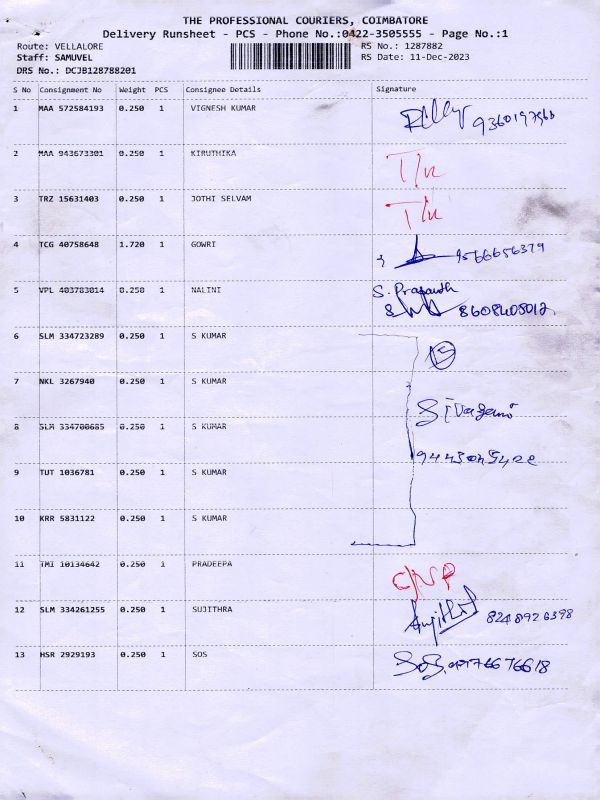 THE PROFESSIONAL COURIERS, COIMBATORE
Delivery Runsheet - PCS - Phone No.:0422-3505555 - Page No.:1
Route: VELLALORE RS No.: 1287882
Staff: SAMUVEL RS Date: 11-Dec-2023
DRS No.: DCJB128788201
S No Consignment No Weight PCS Consignee Details Signature
1 MAA 572584193 0.250 1 VIGNESH KUMAR
2 MAA 943673301 0.250 1 KIRUTHIKA
3 TRZ 15631403 0.250 1 JOTHI SELVAM
4 TCG 40758648 1.720 1 GOWRI 9566656379
5 VPL 403783014 0.250 1 NALINI S. Prasanth
8608405012
6 SLM 334723289 0.250 1 S KUMAR 15
7 NKL 3267940 0.250 1 S KUMAR
8 SLM 334700685 0.250 1 S KUMAR
9 TUT 1036781 0.250 1 S KUMAR
10 KRR 5831122 0.250 1 S KUMAR
11 TMI 10134642 0.250 1 PRADEEPA C/NP
12 SLM 334261255 0.250 1 SUJITHRA Sujithra 8248926398
13 HSR 2929193 0.250 1 SOS SOS